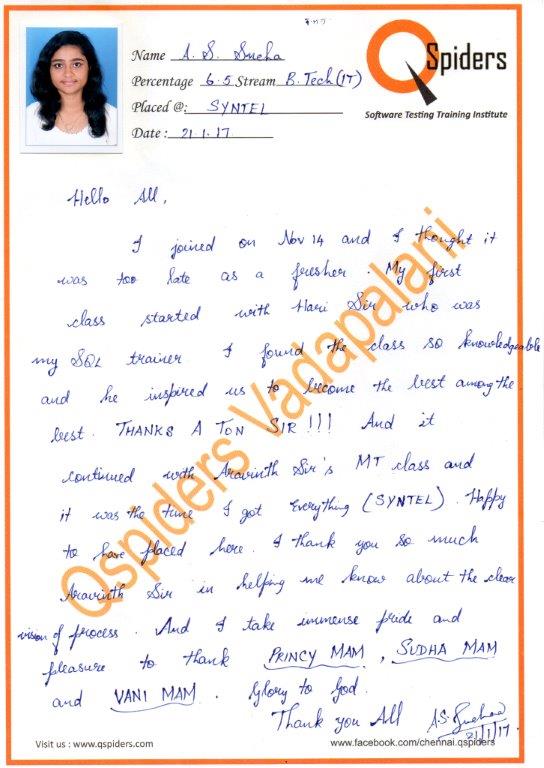 Name A. S. Sneha
Percentage 6.5 Stream B.Tech(IT)
Placed @: SYNTEL
Date : 21.1.17
QSpiders
Software Testing Training Institute
Hello All,
I joined on Nov 14 and I thought it
was too late as a fresher. My first
class started with Hari Sir who was
my SQL trainer I found the class so knowledgeable
and he inspired us to become the best among the
best. THANKS A TON SIR !!! And it
continued with Aravinth Sir's MT class and
it was the time I got everything (SYNTEL). Happy
to have placed here. I thank you so much
Aravinth Sir in helping me know about the clear
vision of process. And I take immense pride and
pleasure to thank PRINCY MAM, SUDHA MAM
and VANI MAM. Glory to God.
Thank you All A.S. Sneha
21/1/17.
Qspiders Vadapalani
Visit us : www.qspiders.com
www.facebook.com/chennai.qspiders